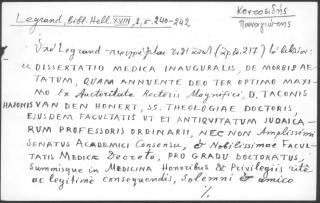 Legrand, Bibl. Hell. XVIII, 2, σ. 240-242
Κοντοειδής
Παναγιώτης
Ὑπὸ Legrand περιγράφεται
" DISSERTATIO MEDICA INAUGURALIS, DE MORBIS AE-
TATUM, QUAM ANNUENTE DEO TER OPTIMO MAXI-
MO Ex Auctoritate Rectoris Magnifici, D. TACONIS
HAJONIS VAN DEN HONERT, S.S. THEOLOGIAE DOCTORIS
EJUSDEM FACULTATIS UT ET ANTIQUITATUM JUDAICA-
RUM PROFESSORIS ORDINARII, NEC NON Amplissimi
SENATUS ACADEMICI Consensu, & Nobilissimae FACUL-
TATIS MEDICAE Decreto, PRO GRADU DOCTORATUS,
Summisque in MEDICINA Honoribus & Privilegiis ritè
ac legitimè consequendis, Solemni & amico
·/.